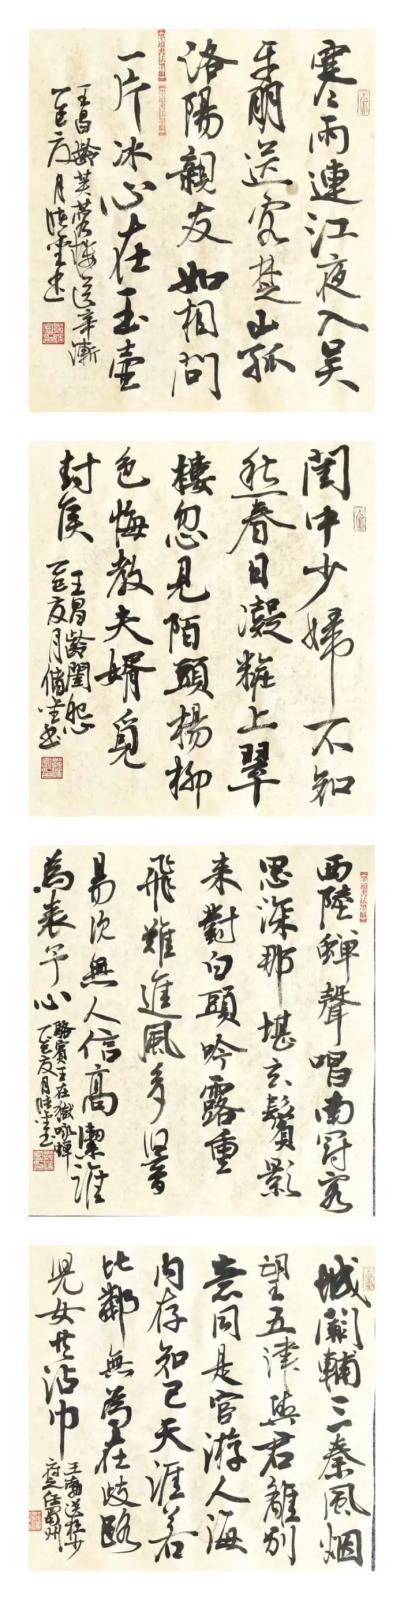 寒雨連江夜入吳
平明送客楚山孤
洛陽親友如相問
一片冰心在玉壺
王昌齡芙蓉樓送辛漸
乙巳夏月
閨中少婦不知
愁春日凝粧上翠
樓忽見陌頭楊柳
色悔教夫婿覓
封侯
王昌齡閨怨
乙巳夏月
西陸蟬聲唱南冠客
思深那堪玄鬢影
來對白頭吟露重
飛難進風多響
易沉無人信高潔誰
為表予心
駱賓王在獄詠蟬
乙巳夏月
城闕輔三秦風烟
望五津與君離別
意同是宦游人海
內存知己天涯若
比鄰無為在歧路
兒女共沾巾
王勃送杜少
府之任蜀州